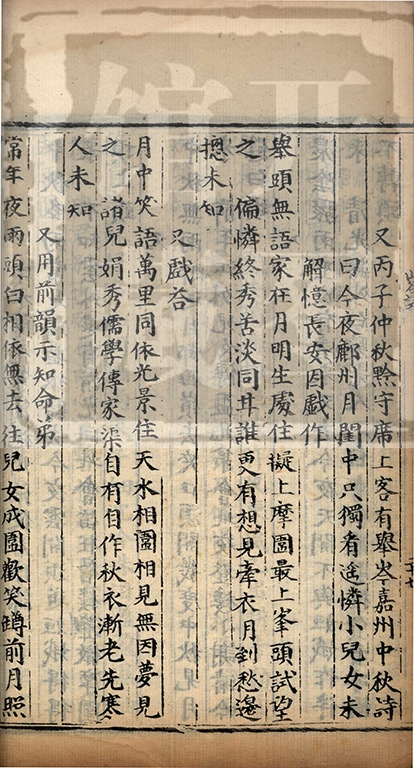 又丙子仲秋黔守席上客有舉岑嘉州中秋詩
曰今夜鄜州月閨中只獨看遙憐小兒女未
解憶長安因戲作
舉頭無語家在月明生處住擬上摩圍最上峯頭試望
之 偏憐絡秀苦淡同甘誰更有想見牽衣月到愁邊
摠未知
又戲荅
月中笑語萬里同依光景住天水相圍相見無因夢見
之 諸兒娟秀儒學傳家渠自有自作秋衣漸老先寒
人未知
又用前韻示知命弟
當年夜雨頭白相依無去住兒女成圍歡笑罇前月照